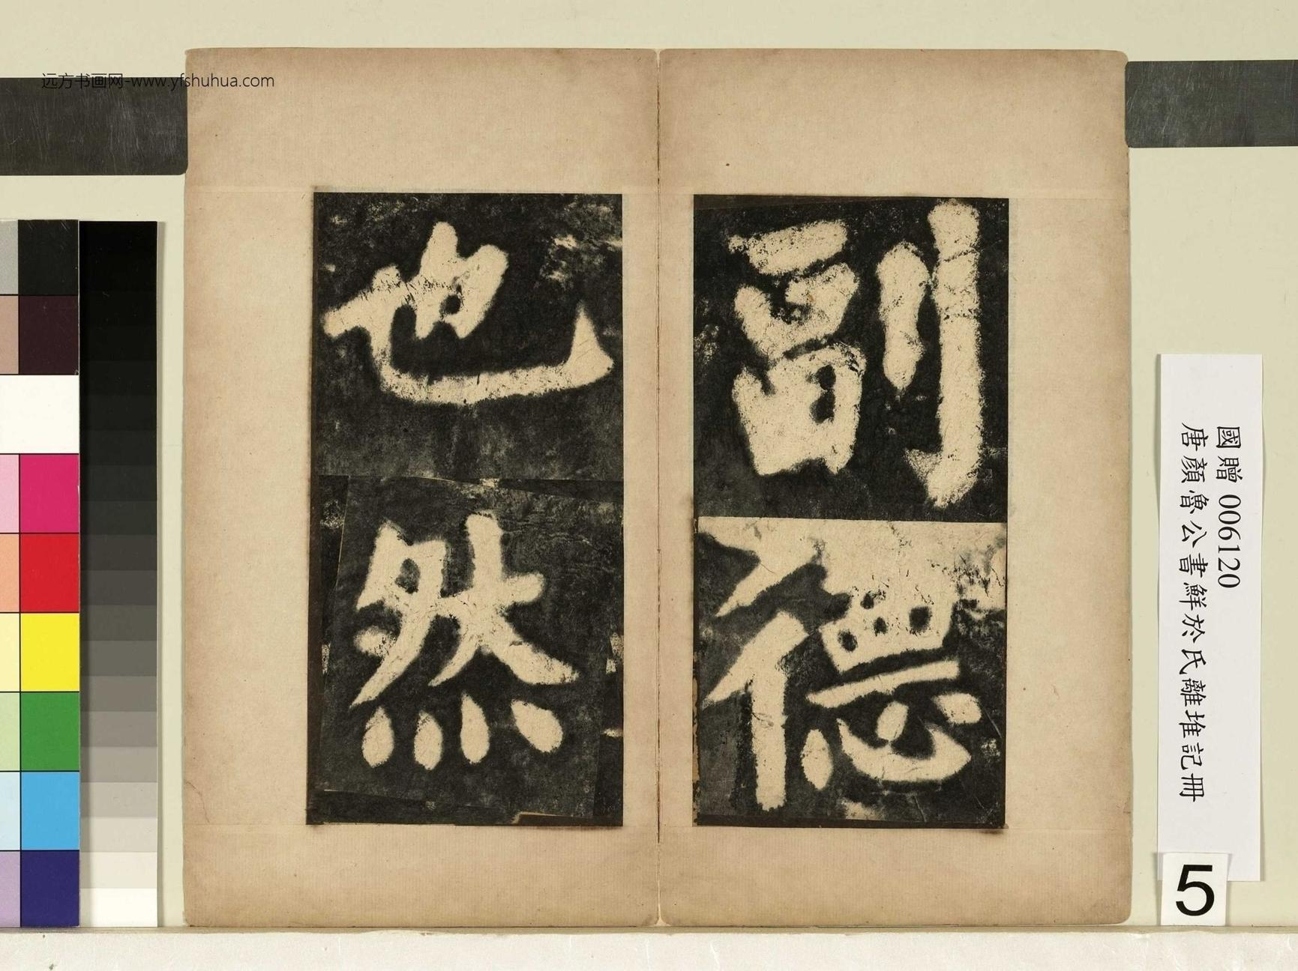 远方书画网-www.yfshuhua.com
副德
也然
國贈 006120
唐顏魯公書鮮於氏離堆記冊
5